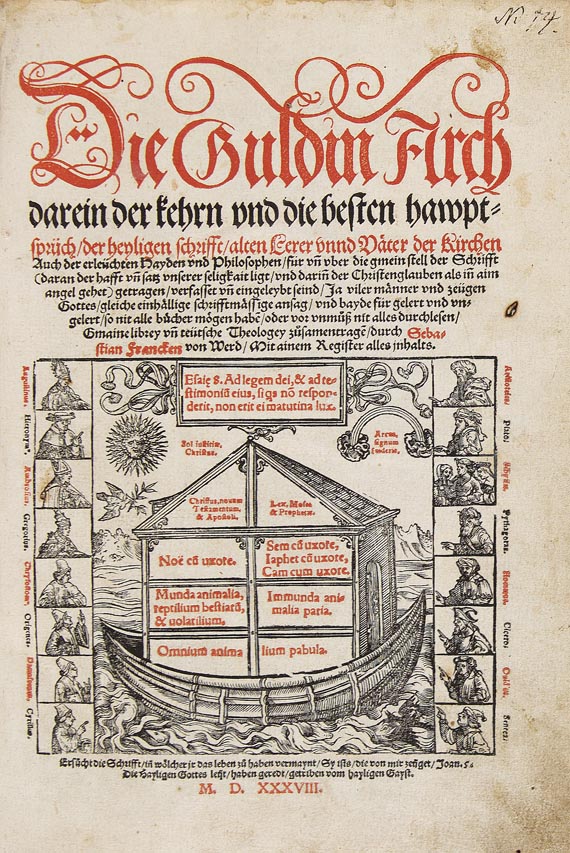 Die Guldin Arch
darein der kehrn vnd die besten hawpt⸗
sprüch/der heyligen schrifft/alten Lerer vnnd Väter der Kirchen
Auch der erleüchten Hayden vnd Philosophen/für vñ vber die gmein stell der Schrifft
(daran der hafft vñ satz vnserer seligkait ligt/vnd dariñ der Christenglauben als iñ aim
angel gehet) getragen/verfasset vñ eingeleybt seind/Ja viler männer vnd zeügen
Gottes/gleiche einhällige schrifftmässige ansag/vnd bayde für gelert vnd vn⸗
gelert/so nit alle bücher mögen habē/oder vor vnmůß nit alles durchlesen/
Gmaine librey vñ teütsche Theologey zůsamentragē/durch Seba⸗
stian Francken von Werd/Mit ainem Register alles jnhalts.
Esaię 8. Ad legem dei, & ad te⸗
stimoniũ eius, si qs nõ respon⸗
derit, non erit ei matutina lux.
Sol iusticiæ,
Christus.
Arcus,
signum
fœderis.
Christus, nouum
Testamentum,
& Apostoli.
Lex, Moses
& Prophetæ.
Noë cũ uxore.
Sem cũ uxote,
Iaphet cũ uxore,
Cam cum uxore.
Munda animalia,
reptilium bestiarũ,
& uolatilium.
Immunda ani⸗
malia paria.
Omnium anima
lium pabula.
Hieronym⁹.
Ambrosius.
Gregorius.
Origenes.
Cyrillus.
Aristoteles.
Plato.
Pythagoras.
Cicero.
Ouidius.
Seneca.
Ersůcht die Schrifft/iñ wölcher jr das leben zů haben vermaynt/Sy ists/die von mir zeüget/Joan.5.
Die Hayligen Gottes leüt/haben geredt/getriben vom hayligen Gayst.
M. D. XXXVIII.